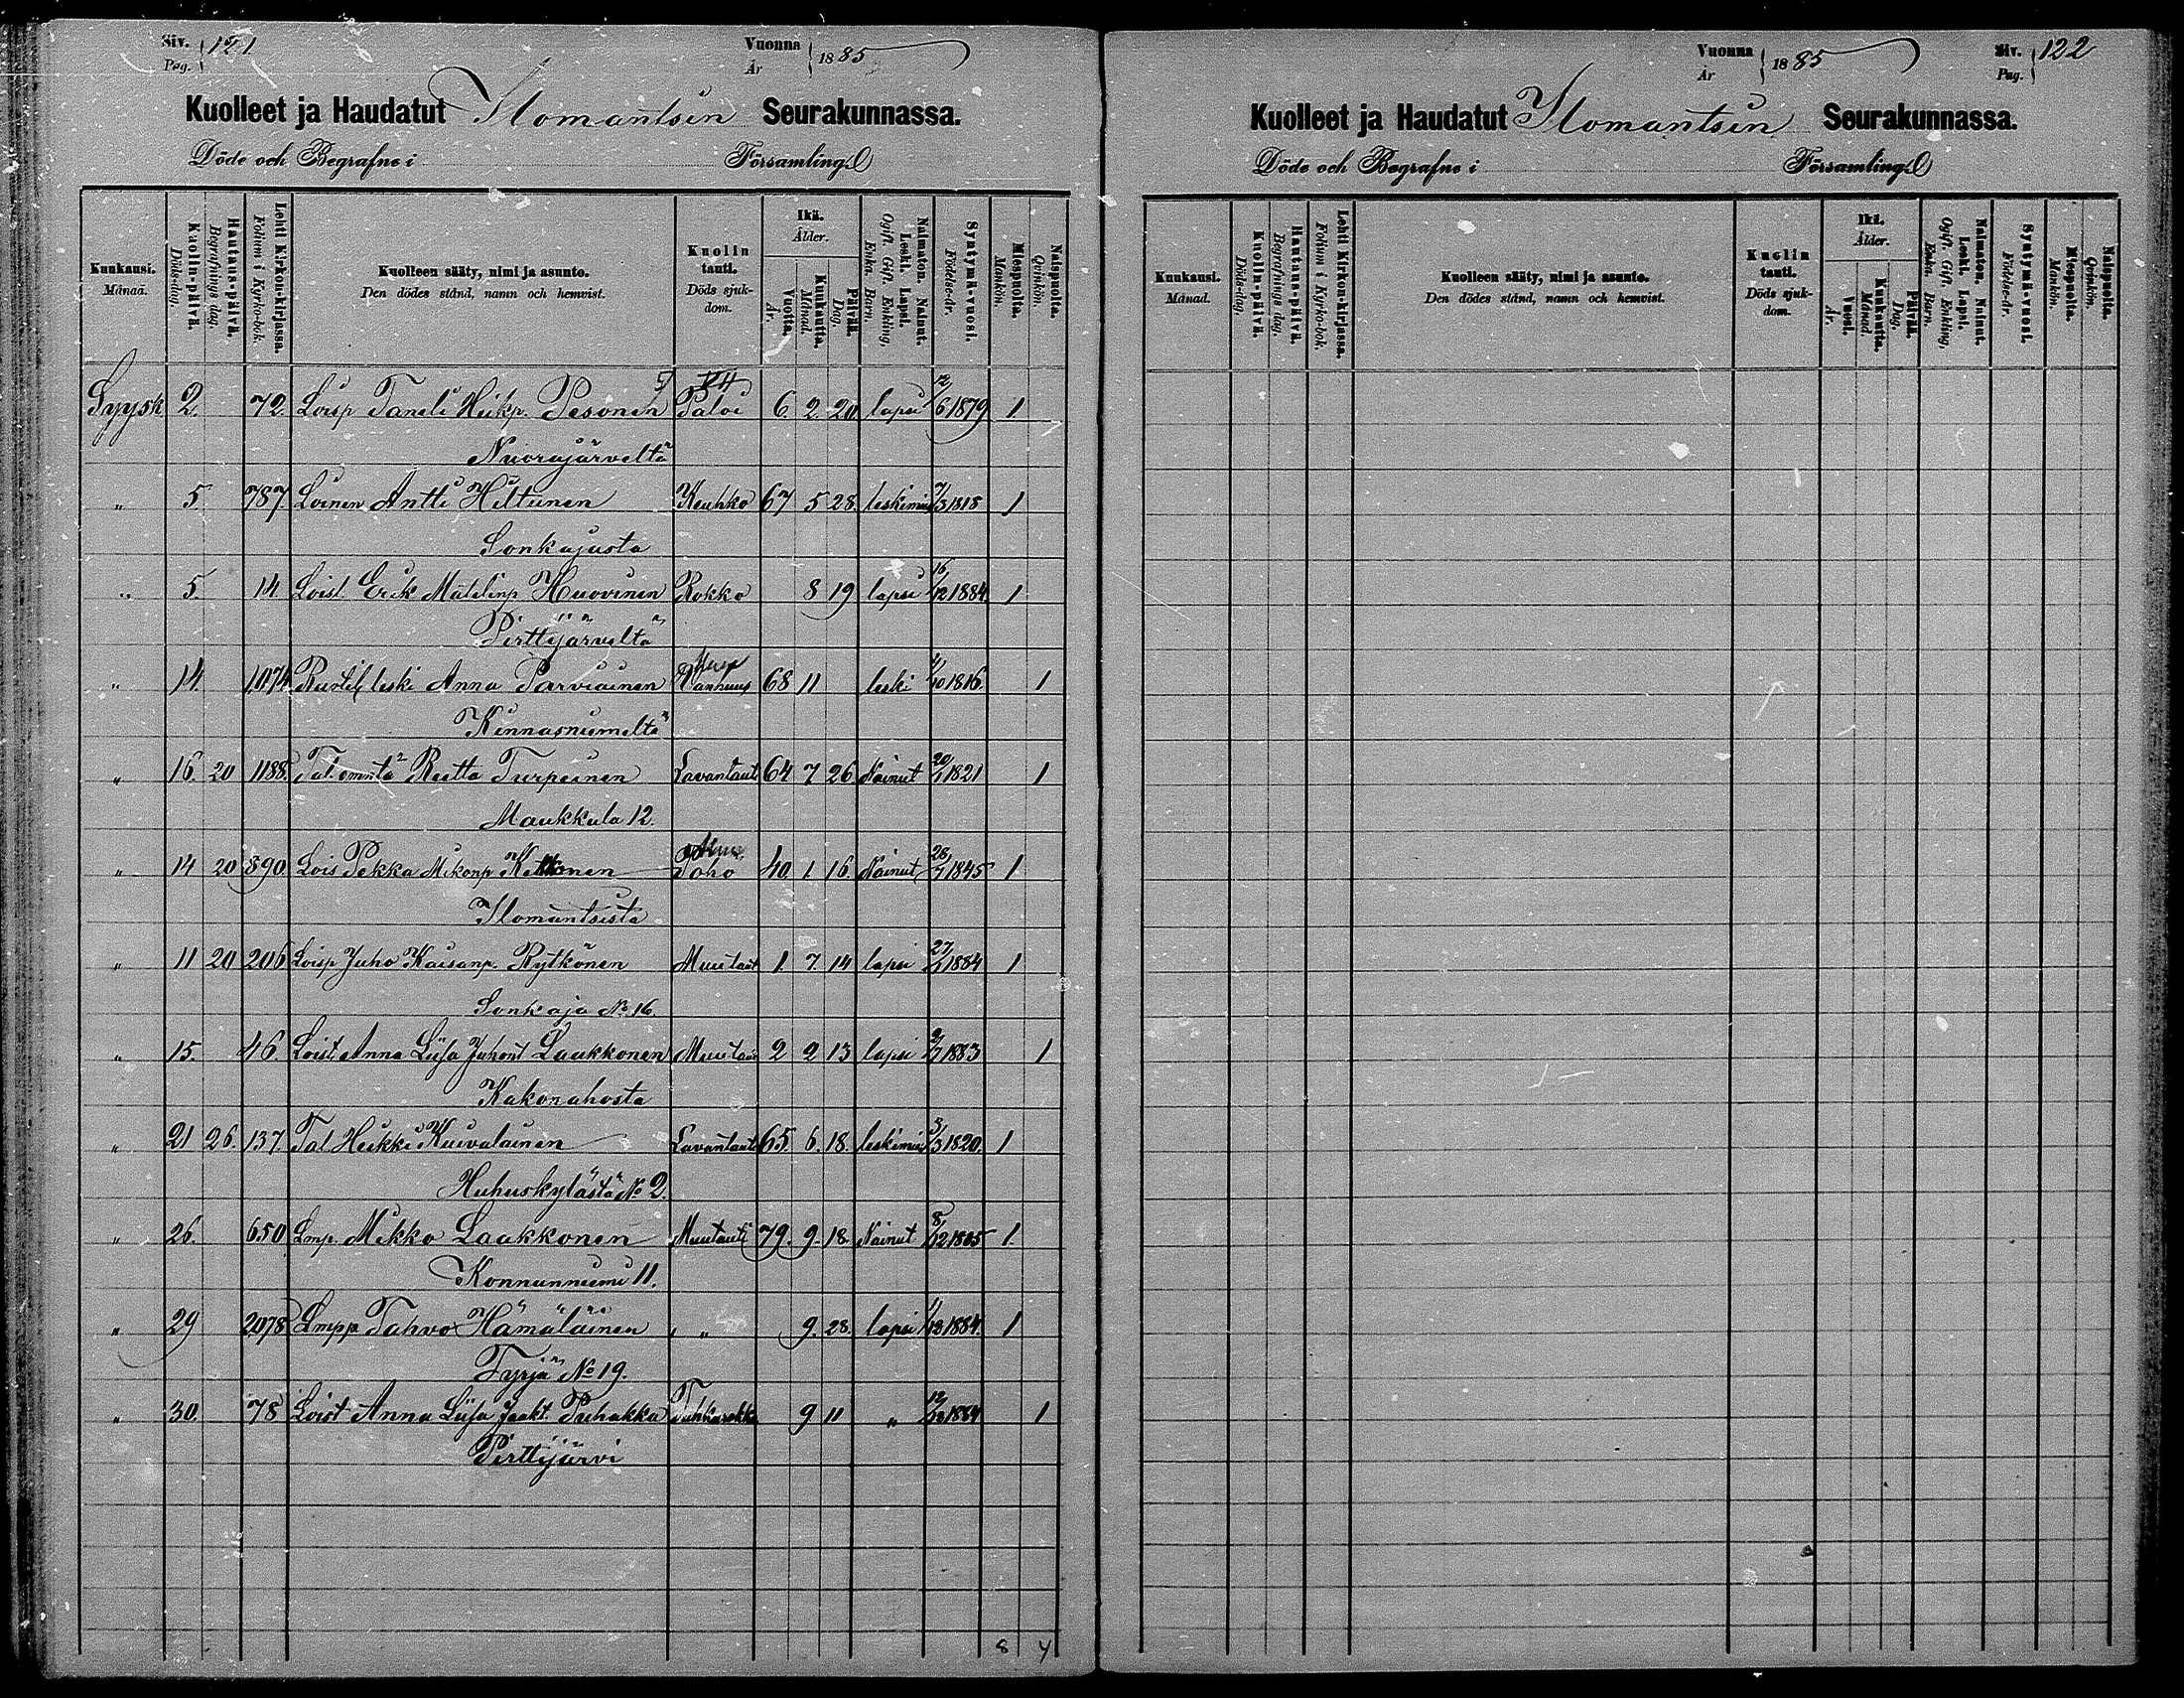 Siv. Pag. 121 Vuonna År 1885
Kuolleet ja Haudatut Ilomantsin Seurakunnassa.
Döde och Begrafne i Församling.
Kuukausi. Månad. Kuolin-päivä. Döds-dag. Hautaus-päivä. Begrafnings dag. Lehti Kirkon-kirjassa. Folium i Kyrko-bok. Kuolleen sääty, nimi ja asunto. Den dödes stånd, namn och hemvist. Kuolin tauti. Döds sjuk-dom. Ikä. Ålder. Vuotta. År. Kuukautta. Månad. Päivää. Dag. Naimaton. Nainut. Leski. Lapsi. Ogift. Gift. Enkling, Enka. Barn. Syntymä-vuosi. Födelse-år. Miespuolta. Mankön. Naispuolta. Qvinkön.
Syysk 2. 72. Loisp Taneli Heikp. Pesonen Paloi 6. 2. 20 lapsi 12/6 1879 1
Nuorajärveltä
" 5. 787. Loinen Antti Hiltunen Keuhko 67 5 28. leskimies 7/3 1818 1
Sonkajasta
" 5. 14 Loisl Erik Matilinp Huovinen Rokko 8 19 lapsi 16/12 1884. 1
Pirttijärveltä
" 14. 1074 leski Anna Parviainen Vanhuus 68 11 leski 4/10 1816. 1
Kinnasniemeltä
" 16. 20 1188. Tal emäntä Reetta Turpeinen Lavantauti 64 7 26 Nainut 20/1 1821 1
Maukkula 12.
" 14 20 890 Lois Pekka Mikonp Poho 40. 1. 16. Nainut 28/7 1845 1
Ilomantsista
" 11 20 206 Loisp Juho Kaisanp. Rytkönen Muutaut 1. 7. 14 lapsi 27/1 1884 1
Sonkaja No 16.
" 15. 46. Loist Anna Liisa Juhont Laukkonen Muutau 2 2 13 lapsi 2/7 1883 1
Kakonahosta
" 21 26. 137. Tal Heikki Kuivalainen Lavantauti 65. 6. 18. leskimies 3/3 1820. 1
Huhuskylästä No 2.
" 26. 650 Lmp. Mikko Laakkonen Muutauti 79. 9. 18. Nainut 8/12 1805 1.
Konnunniemi 11.
" 29 2078 Lmpp Tahvo Hämäläinen " 9. 28. lapsi 1/12 1884. 1
Tyrjä No 19.
" 30. 78 Loist Anna Liisa Jaakt. Puhakka Tuhkarokko 9 11 " 19/12 1884 1
Pirttijärvi
8 4
Vuonna År 1885 Siv. Pag. 122
Kuolleet ja Haudatut Ilomantsin Seurakunnassa.
Döde och Begrafne i Församling.
Kuukausi. Månad. Kuolin-päivä. Döds-dag. Hautaus-päivä. Begrafnings dag. Lehti Kirkon-kirjassa. Folium i Kyrko-bok. Kuolleen sääty, nimi ja asunto. Den dödes stånd, namn och hemvist. Kuolin tauti. Döds sjuk-dom. Ikä. Ålder. Vuosi. År. Kuukautta. Månad. Päivää. Dag. Naimaton. Nainut. Leski. Lapsi. Ogift. Gift. Enkling, Enka. Barn. Syntymä-vuosi. Födelse-år. Miespuolta. Mankön. Naispuolta. Qvinkön.